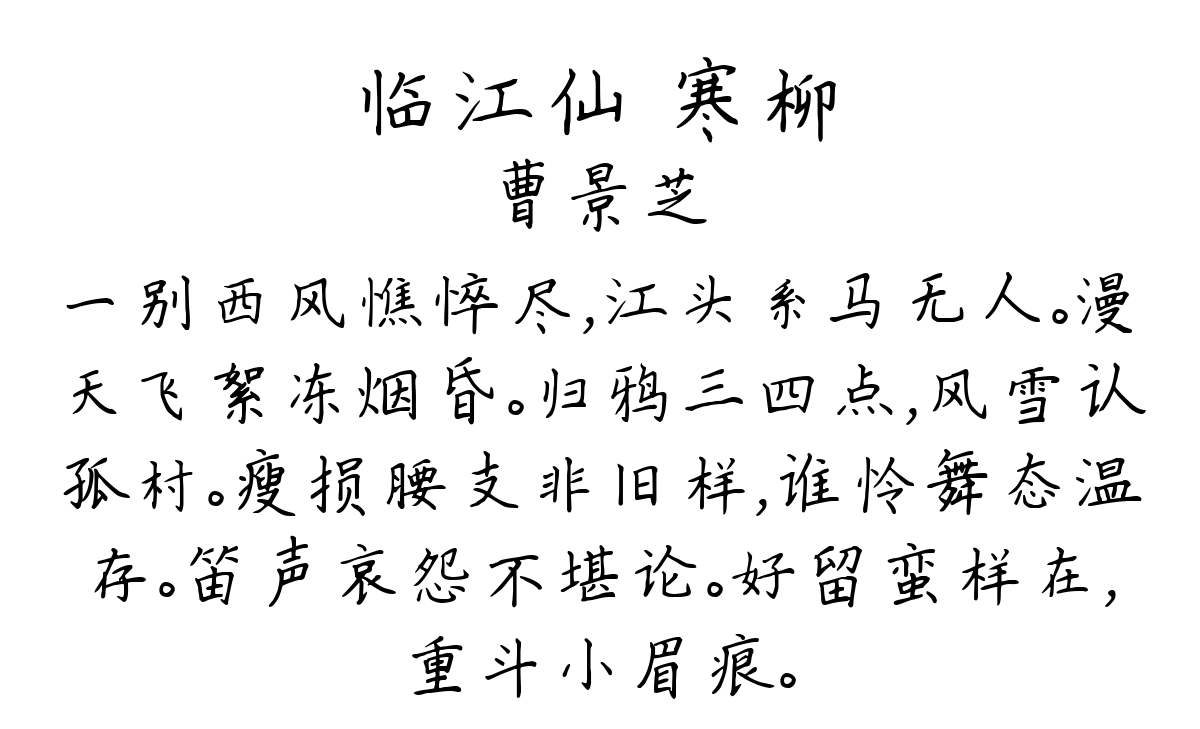 临江仙 寒柳
曹景芝
一别西风憔悴尽,江头系马无人。漫
天飞絮冻烟昏。归鸦三四点,风雪认
孤村。瘦损腰支非旧样,谁怜舞态温
存。笛声哀怨不堪论。好留蛮样在,
重斗小眉痕。